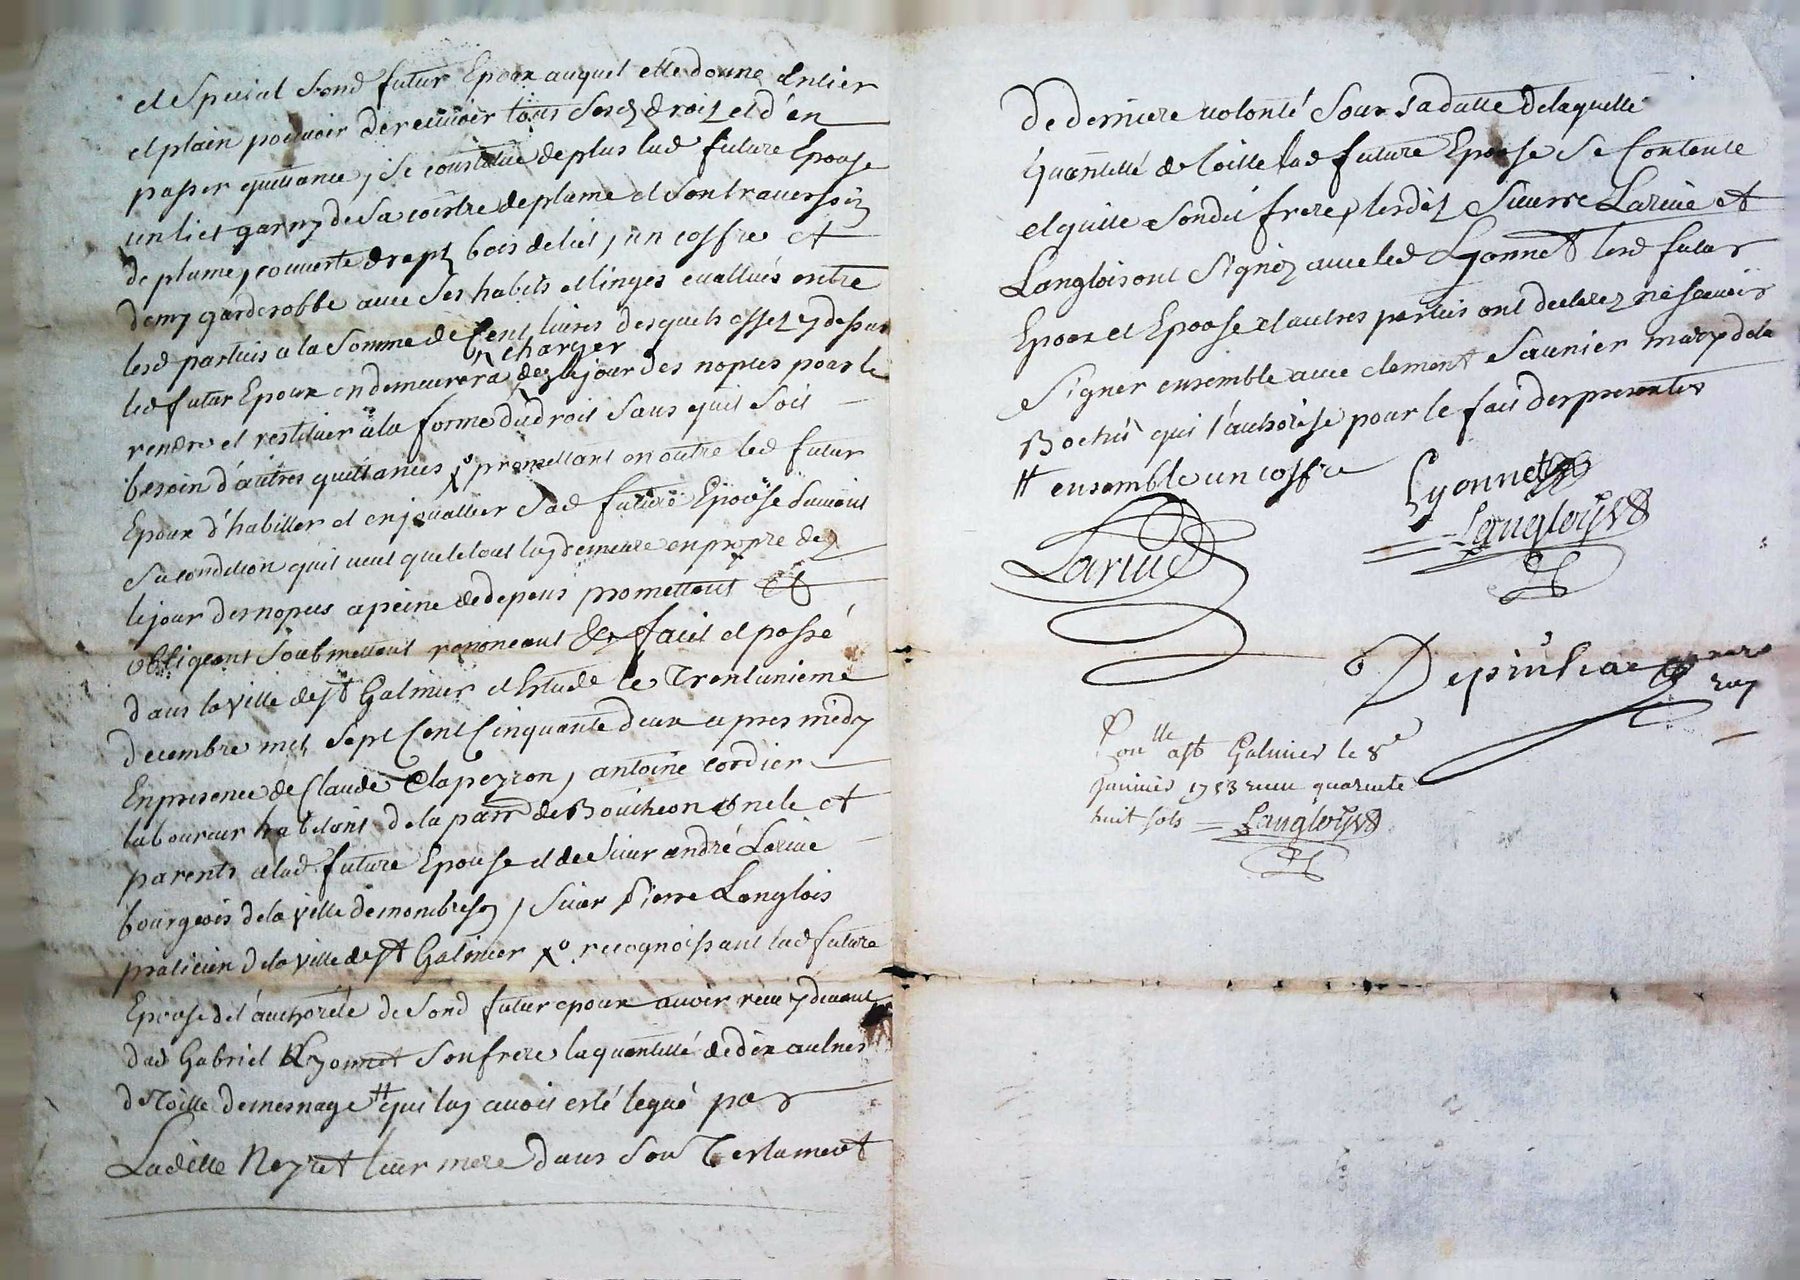 et special sond futur Epoux auquel elle donne Entier
et plain pouvoir de recevoir tous sesd droitz et d'en
passer quittance, se constitue de plus lad future Epouse
un lict garny de sa coistre de plume et son traversin
de plume, couverte drapt bois de lict, un coffre et
demy garderobbe avec ses habits et linges evallués entre
lesd parties a la somme de Cent livres desquels effetz y dessus
led futur Epoux en demeurera charger dez le jour des nopces pour le
rendre et restituer a la forme du droit sans quil soit
besoin d'autres quittances x° promettant en outre led futur
Epoux d'habiller et enjoualler sad future Epouse suivant
sa condition quil veut que le tout luy demeure en propre dez
le jour des nopces a peine de depens promettant et
obligeant soubmettant renonceant &a fait et passé
dans la ville de St Galmier et Estude le Trentunieme
decembre mil sept Cent Cinquante deux apres midy
En presence de Claude Clapeyron, antoine cordier
laboureur habitant de la parr de Boutheon oncle et
parents a lad future Epouse et de Sieur andré Larive
bourgeois de la ville de monbrison, Sieur Pierre Langlois
praticien de la ville de St Galmier x° recognoissant lad future
Epouse de l'authorité de sond futur epoux avoir receu y devant
dud Gabriel Lyonnet son frere la quantité de dix aulnes
de Toille de mesnage # qui luy avoit esté legué par
Laditte Neyret leur mere dans son Testament
De derniere volonté sous sa datte de laquelle
quantité de toille lad future Epouse se Contente
et quitte sondit frere, lesditz Sieurs Larive et
Langlois ont signéz avec led Lyonnet lesd futur
Epoux et Epouse et autres parties ont declarez ne scavoir
signer ensemble avec clement Saunier mary de la
Bochu qui l'authorise pour le fait des presentes
# ensemble un coffre
Lyonnet
Langloys
Larive
Depinhac
Conlle a St Galmier le 8e
janvier 1753 receu quarante
huit sols Langloys